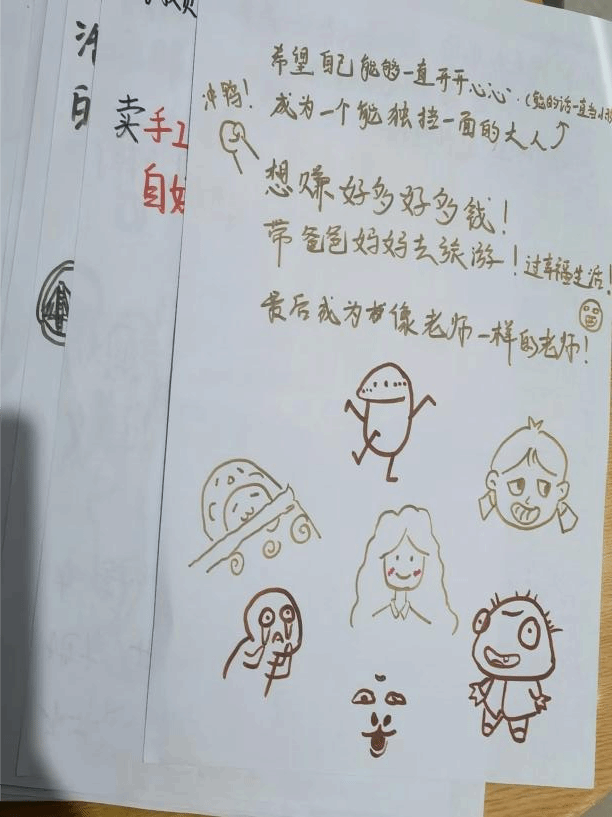 希望自己能够一直开开心心.(能的话一直当小孩
冲鸭!
成为一个能独挡一面的大人
想赚好多好多钱!
带爸爸妈妈去旅游!过幸福生活!
最后成为像老师一样的老师!
卖手工
自